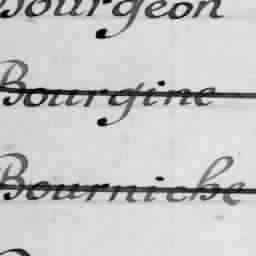 Bourgeon
Bourgine
Bourniche